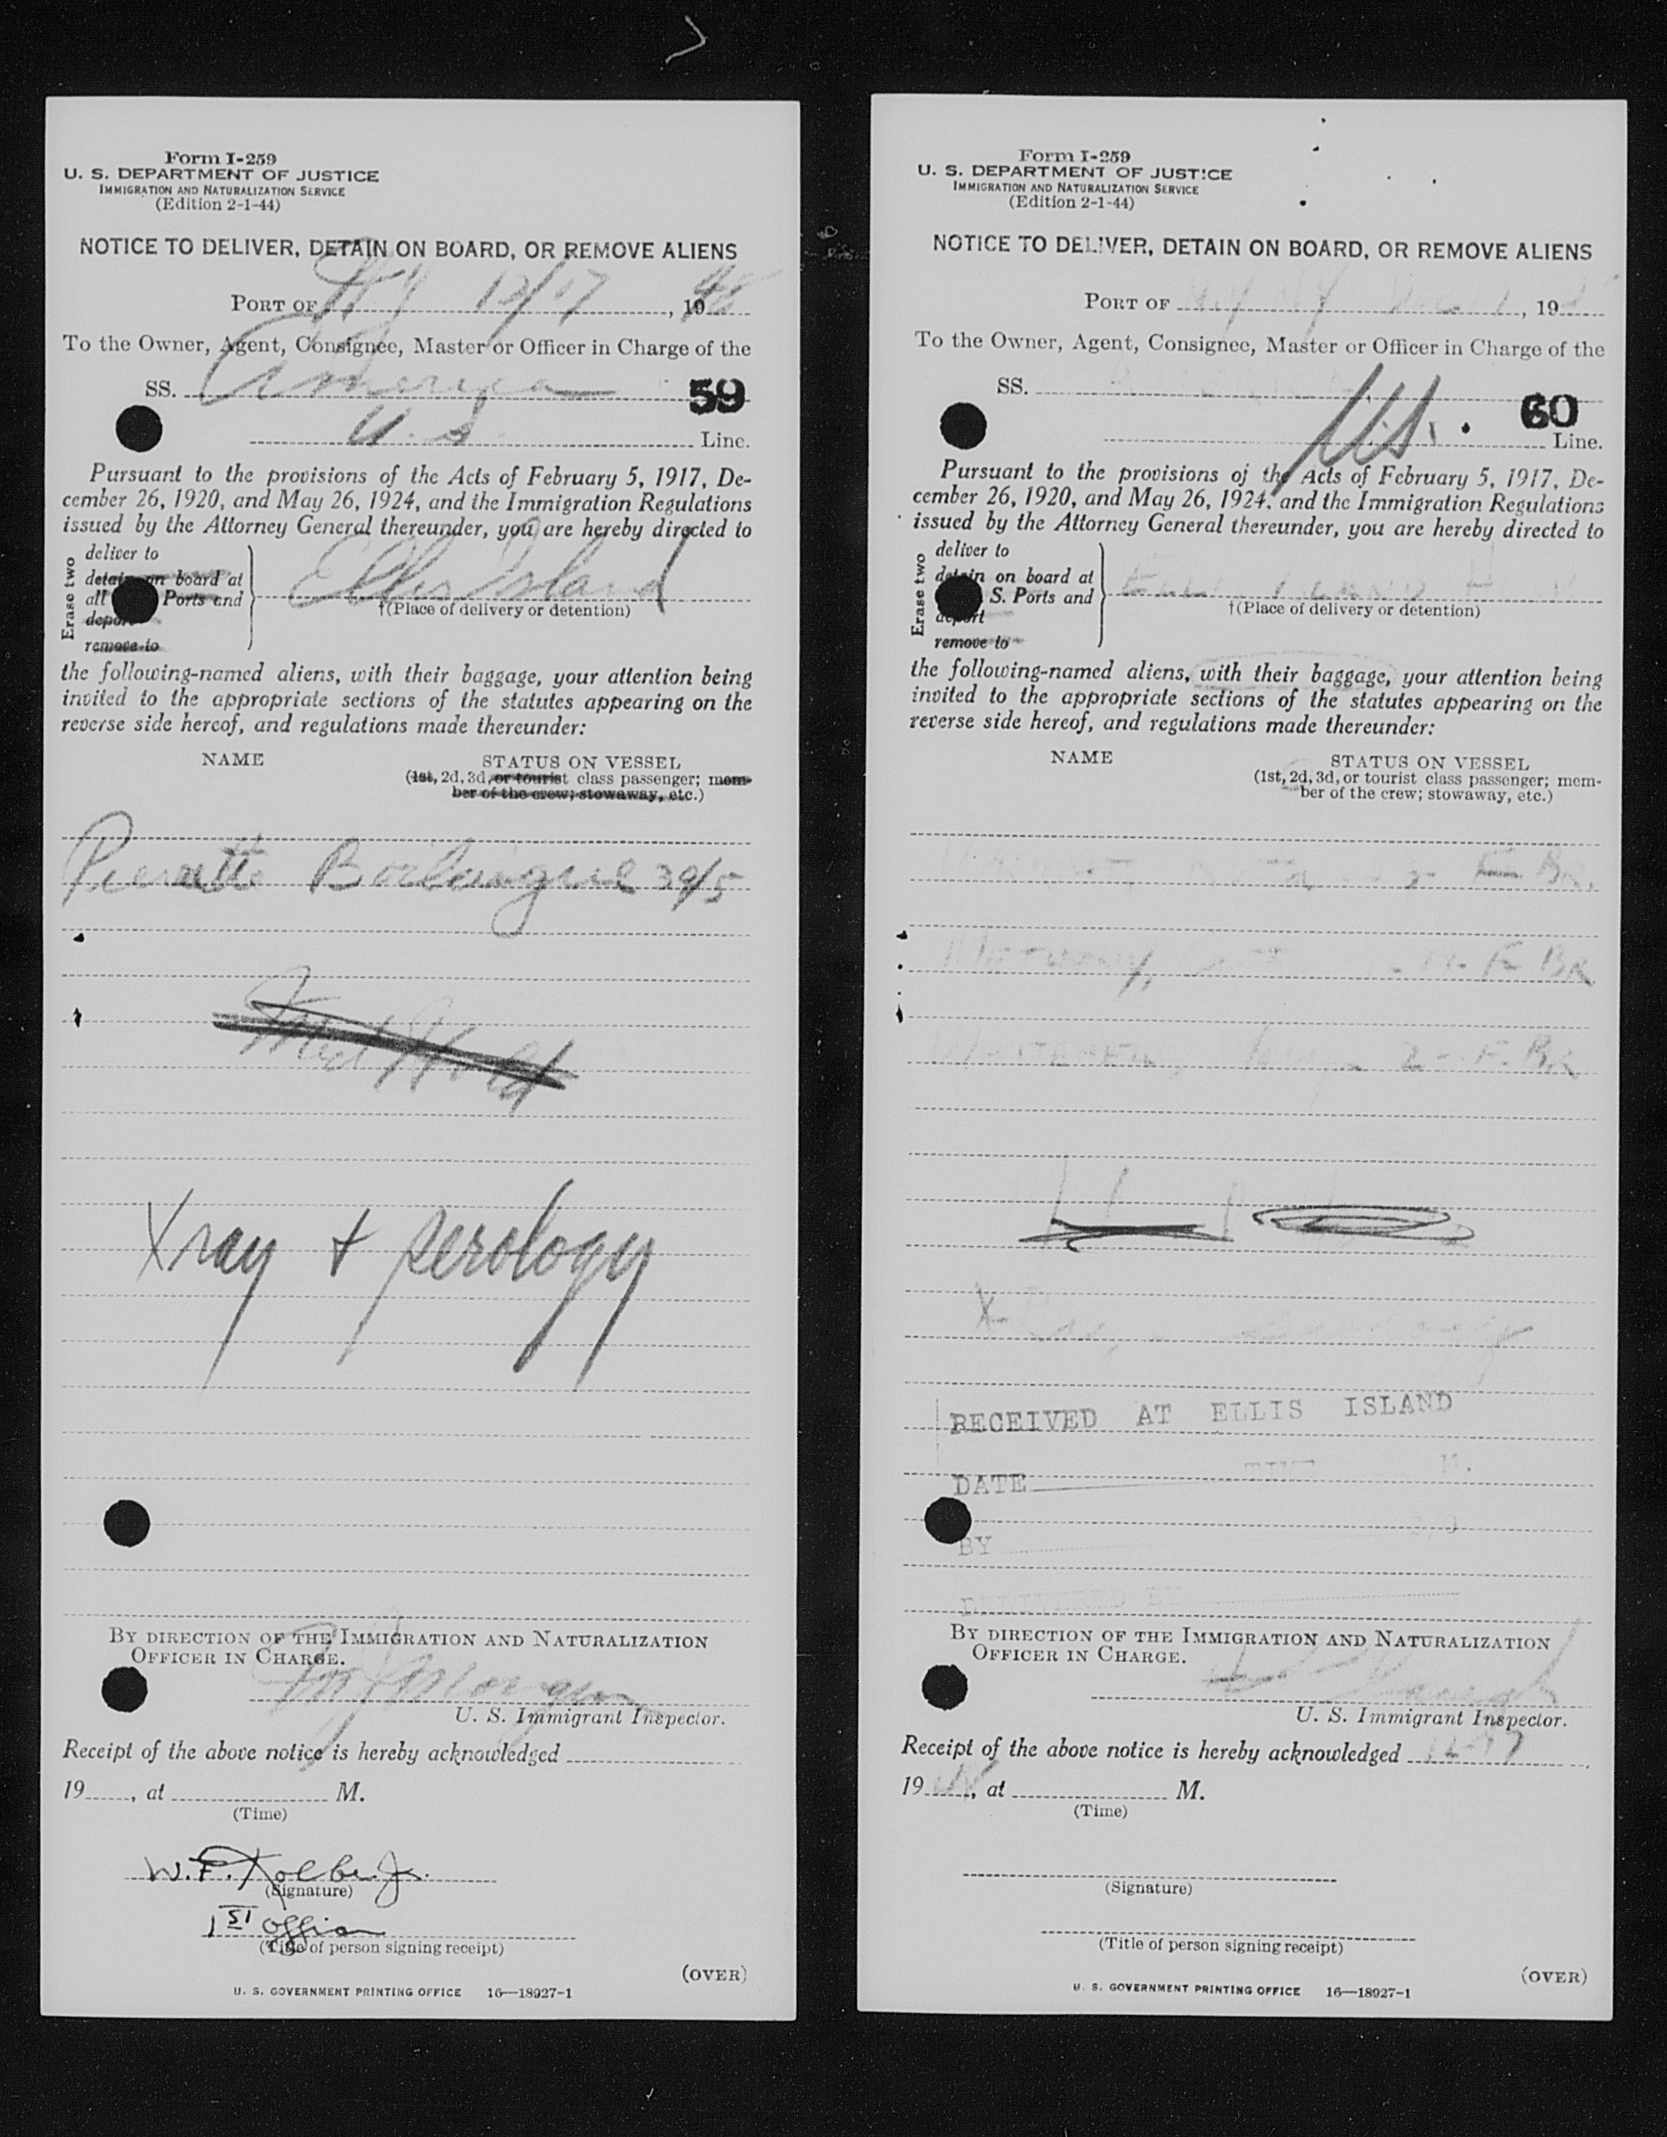 Form I-259
U. S. DEPARTMENT OF JUSTICE
IMMIGRATION AND NATURALIZATION SERVICE
(Edition 2-1-44)
NOTICE TO DELIVER, DETAIN ON BOARD, OR REMOVE ALIENS
PORT OF NY 12/17, 1948
To the Owner, Agent, Consignee, Master or Officer in Charge of the
SS. America 59
U.S. Line.
Pursuant to the provisions of the Acts of February 5, 1917, De-
cember 26, 1920, and May 26, 1924, and the Immigration Regulations
issued by the Attorney General thereunder, you are hereby directed to
Erase two
deliver to
detain on board at
all Ports and
deport
remove to
Ellis Island
†(Place of delivery or detention)
the following-named aliens, with their baggage, your attention being
invited to the appropriate sections of the statutes appearing on the
reverse side hereof, and regulations made thereunder:
NAME STATUS ON VESSEL
(1st, 2d, 3d, or tourist class passenger; mem-
ber of the crew; stowaway, etc.)
39/5
Med Hold
Xray + serology
BY DIRECTION OF THE IMMIGRATION AND NATURALIZATION
OFFICER IN CHARGE.
U. S. Immigrant Inspector.
Receipt of the above notice is hereby acknowledged
19, at M.
(Time)
W.F. Kolbe Jr.
(Signature)
1ST Officer
(Title of person signing receipt)
(OVER)
U. S. GOVERNMENT PRINTING OFFICE 16—18927-1
Form I-259
U. S. DEPARTMENT OF JUSTICE
IMMIGRATION AND NATURALIZATION SERVICE
(Edition 2-1-44)
NOTICE TO DELIVER, DETAIN ON BOARD, OR REMOVE ALIENS
PORT OF , 19
To the Owner, Agent, Consignee, Master or Officer in Charge of the
SS. 60
U.S. Line.
Pursuant to the provisions of the Acts of February 5, 1917, De-
cember 26, 1920, and May 26, 1924, and the Immigration Regulations
issued by the Attorney General thereunder, you are hereby directed to
Erase two
deliver to
detain on board at
S. Ports and
deport
remove to
ELLIS ISLAND
†(Place of delivery or detention)
the following-named aliens, with their baggage, your attention being
invited to the appropriate sections of the statutes appearing on the
reverse side hereof, and regulations made thereunder:
NAME STATUS ON VESSEL
(1st, 2d, 3d, or tourist class passenger; mem-
ber of the crew; stowaway, etc.)
F BR.
F BR
2 - F. BR
RECEIVED AT ELLIS ISLAND
DATE TIME M.
BY
DELIVERED BY
BY DIRECTION OF THE IMMIGRATION AND NATURALIZATION
OFFICER IN CHARGE.
U. S. Immigrant Inspector.
Receipt of the above notice is hereby acknowledged 12-17
1948, at M.
(Time)
(Signature)
(Title of person signing receipt)
(OVER)
U. S. GOVERNMENT PRINTING OFFICE 16—18927-1